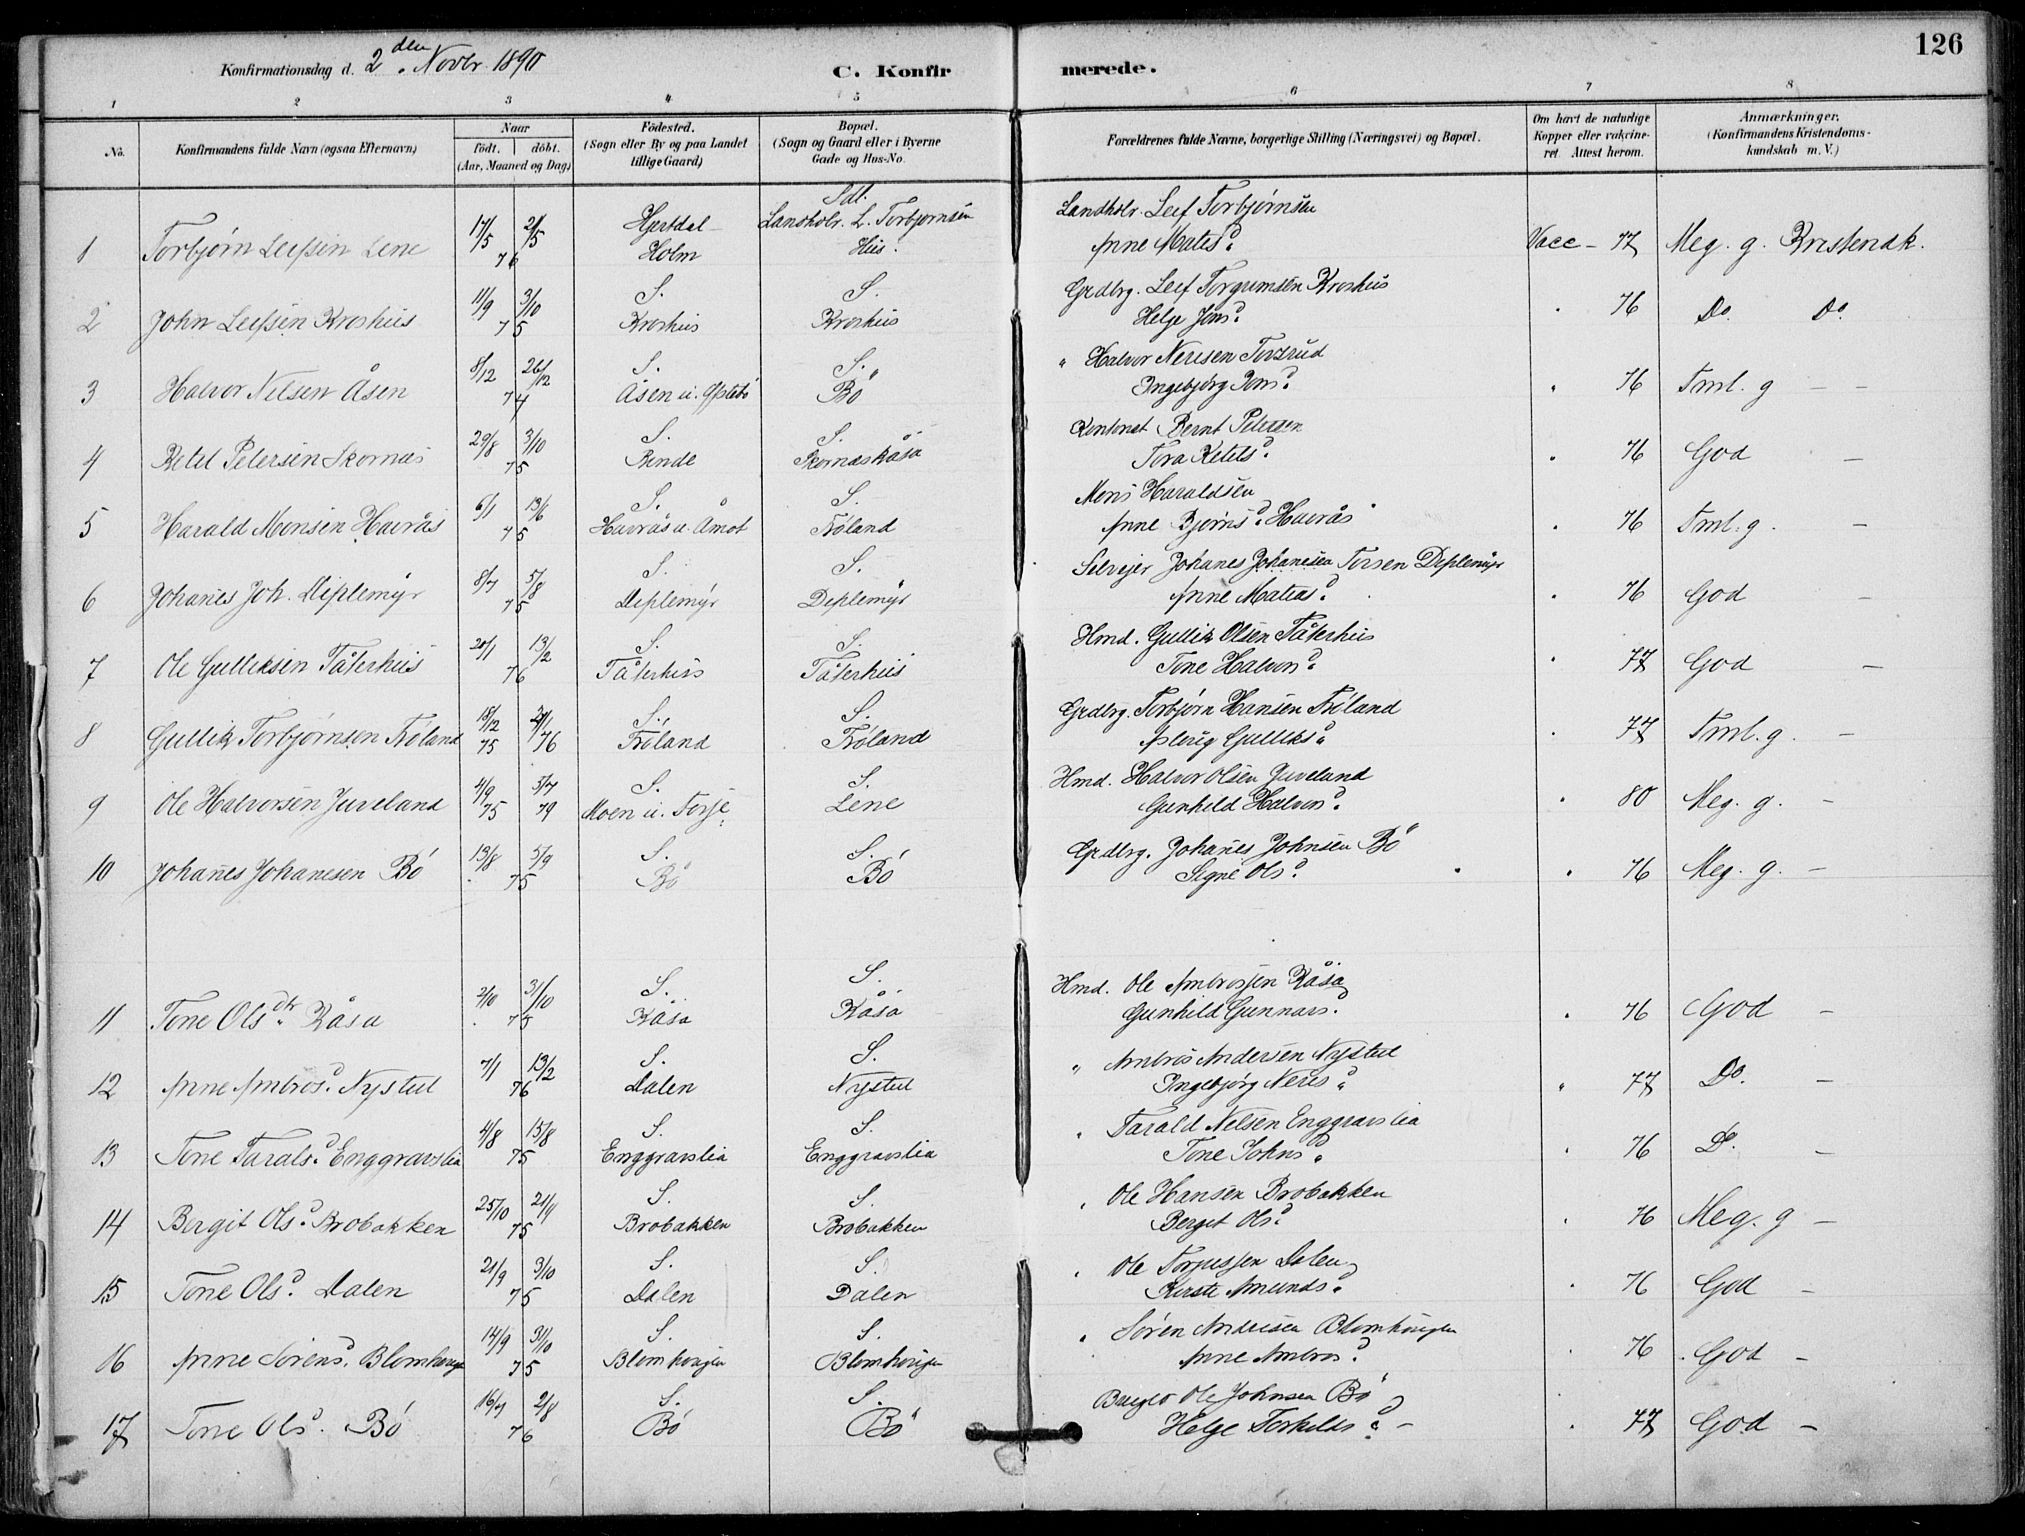 126
Konfirmationsdag d. 2den Novbr. 1890
C. Konfirmerede.
1 2 3 4 5 6 7 8
No.
Konfirmandens fulde Navn (ogsaa Efternavn)
Naar
født. døbt.
(Aar, Maaned og Dag)
Fødested.
(Sogn eller By og paa Landet
tillige Gaard)
Bopæl.
(Sogn og Gaard eller i Byerne
Gade og Hus-No.
Forældrenes fulde Navne, borgerlige Stilling (Næringsvei) og Bopæl.
Om havt de naturlige
Kopper eller vakcine-
ret Attest herom.
Anmærkninger.
(Konfirmandens Kristendoms-
kundskab m. V.)
Sdl.
Hjertdal Landholr. L. Torbjørnsen Landholr. Leif Torbjørnsen
1 Torbjørn Leifsen Lene 17/5 21/5 76 Holm Hus. Anne Mates d. Vacc – 77 Meg. g. Kristendk.
S. S. Grdbrg. Leif Torgrimsen Kroshus
2 John Leifsen Kroshus 11/9 3/10 75 Kroshus Kroshus Helge Jons d. " 76 Do. Do.
S. S. " Halvor Nerisen
3 Halvor Nilsen Åsen 8/12 26/12 74 Åsen u. Bø Ingebjørg Jons d. " 76 Tml. g – –
S. S. Kontorist Bernt Petersen
4 Ketil Petersen Skornæs 29/8 3/10 75 Rinde Skornæs Råsa Tora Ketels d. " 76 God –
S. S. Mons Haraldsen
5 Harald Monsen Havrås 6/1 13/6 75 Havrås u. Åmot Tróland Anne Bjørns d. Havrås " 76 Tml. g. –
S. S. Selvejer Johanes Johanesen Tersen Deplemyr
6 Johanes Joh. Deplemyr 8/7 5/8 75 Deplemyr Deplemyr Anne Mateas d. " 76 God –
S. S. Hmd. Gullik Olsen Tåterhus
7 Ole Gulliksen Tåterhus 20/1 13/2 76 Tåterhus Tåterhus Tone Halvors d. " 77 God –
S. S. Grdbrg. Torbjørn Hansen Tróland
8 Gullik Torbjørnsen Tróland 18/12 75 76 Tróland Tróland Aslaug Gulliks d. " 77 Tml. g. –
S. S. Hmd. Halvor Olsen Juveland
9 Ole Halvorsen Juveland 4/9 75 79 Moen u. Torje Lene Gunhild Halvors d. " 80 Meg. g. –
S. S. Grdbrg. Johanes Johnsen Bø
10 Johanes Johanesen Bø 13/8 5/9 75 Bø Bø Signe Ols d. " 76 Meg. g. –
S. S. Hmd. Ole Ambrosjen Råsa
11 Tone Ols dtr Råsa 2/10 31/10 75 Råsa Råsa Gunhild Gunnars d. " 76 God –
S. S. " Ambros Andersen Nystul
12 Anne Ambros d. Nystul 7/1 13/2 76 Dalen Nystul Ingebjørg Neris d. " 77 Do. –
S. S. " Tarald Nelsen Enggravslia
13 Tone Tarals d. Enggravslia 4/8 15/8 75 Enggravslia Enggravslia Tone Johns d. " 76 Do. –
S. S. " Ole Hansen Brobakken
14 Bergit Ols d. Brobakken 25/10 21/11 75 Brobakken Brobakken Berget Ols d. " 76 Meg. g –
S. S. " Ole Torjussen Dalen
15 Tone Ols d. Dalen 21/9 3/10 75 Dalen Dalen Kirste Amunds d. " 76 God –
S. S. " Søren Andersen Blomhougen
16 Anne Sørens d. Blomhougen 14/9 31/10 75 Blomhougen Blomhougen Anne Ambros d. " 76 God –
S. S. Ole Johnsen Bø
17 Tone Ols d. Bø 16/7 2/8 76 Bø Bø Helge Torkilds d. – " 77 God –